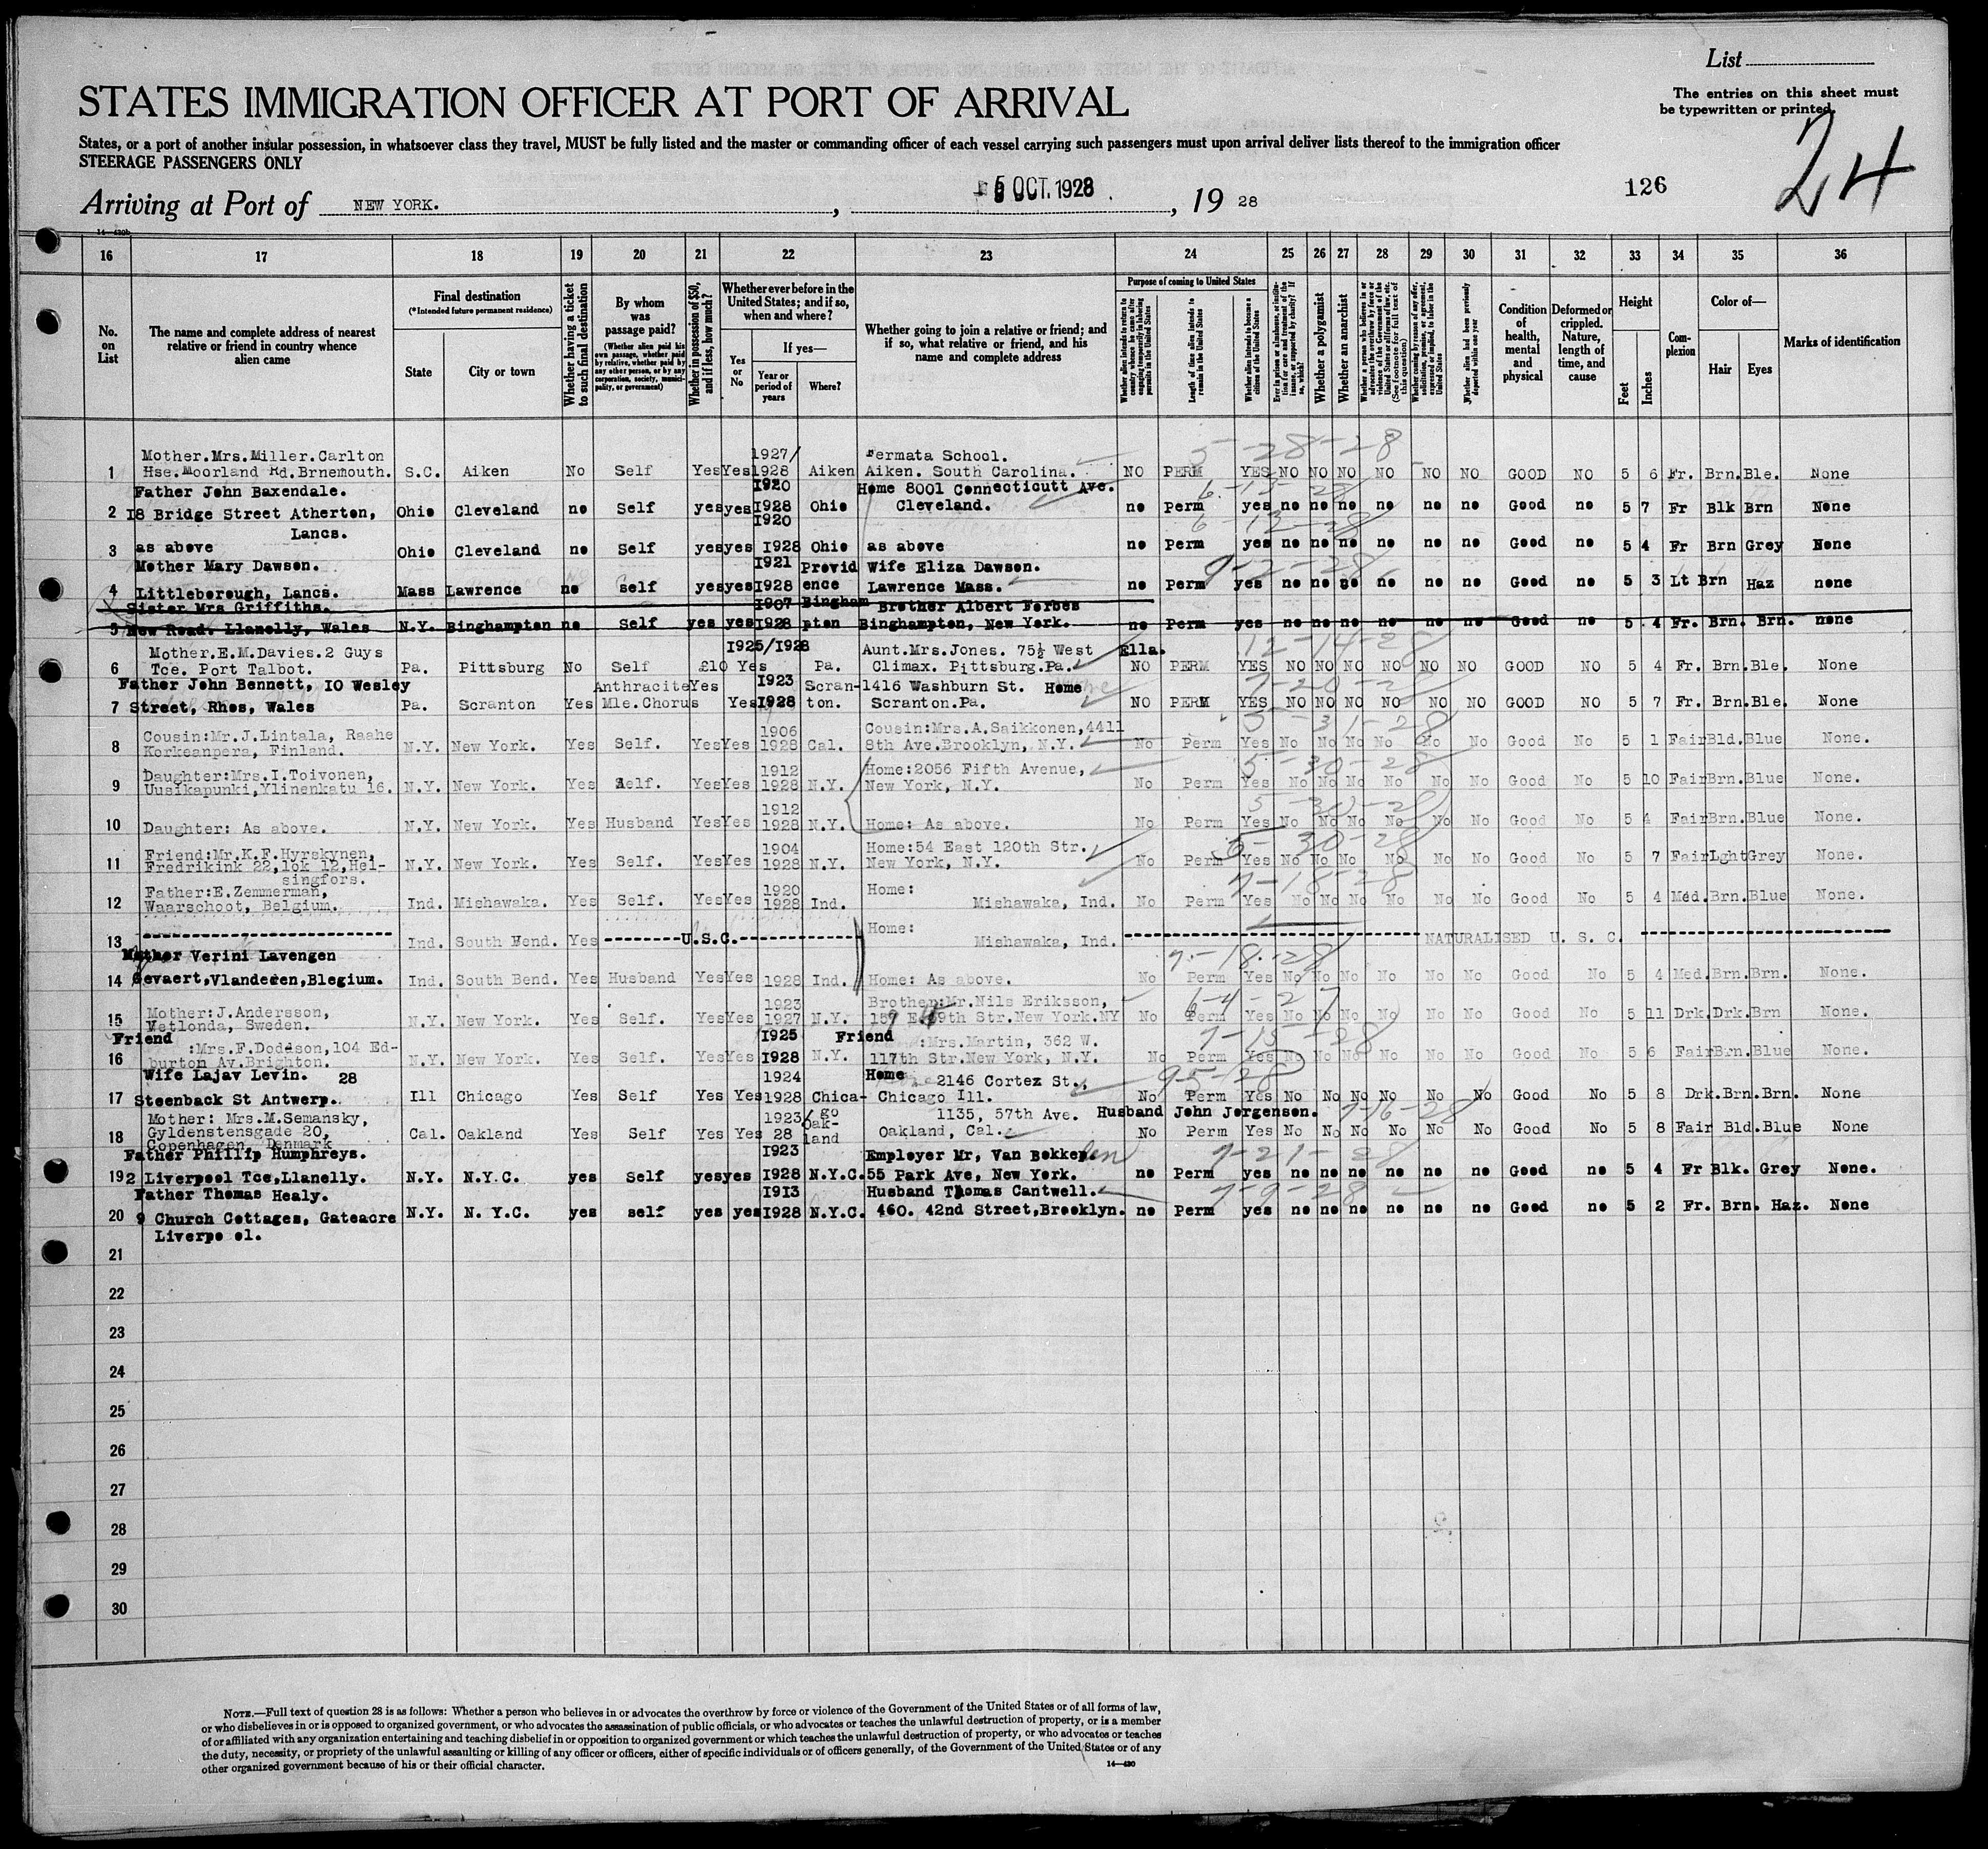 List
The entries on this sheet must
be typewritten or printed.
STATES IMMIGRATION OFFICER AT PORT OF ARRIVAL
States, or a port of another insular possession, in whatsoever class they travel, MUST be fully listed and the master or commanding officer of each vessel carrying such passengers must upon arrival deliver lists thereof to the immigration officer
STEERAGE PASSENGERS ONLY
24
126
Arriving at Port of NEW YORK. , 5 OCT. 1928 , 19 28
16 17 18 19 20 21 22 23 24 25 26 27 28 29 30 31 32 33 34 35 36
No. on List
The name and complete address of nearest relative or friend in country whence alien came
Final destination
(*Intended future permanent residence)
State
City or town
Whether having a ticket to such final destination
By whom was passage paid?
(Whether alien paid his own passage, whether paid by relative, whether paid by any other person, or by any corporation, society, municipality, or government)
Whether in possession of $50, and if less, how much?
Whether ever before in the United States; and if so, when and where?
Yes or No
If yes—
Year or period of years
Where?
Whether going to join a relative or friend; and if so, what relative or friend, and his name and complete address
Purpose of coming to United States
Length of time alien intends to remain in the United States
Whether alien intends to become a citizen of the United States
Whether a polygamist
Whether an anarchist
Condition of health, mental and physical
Deformed or crippled. Nature, length of time, and cause
Height
Feet
Inches
Complexion
Color of—
Hair
Eyes
Marks of identification
Mother.Mrs.Miller.Carlton 1927/ Fermata School. 5-28-28
1 Hse.Moorland Rd.Brnemouth. S.C. Aiken No Self Yes Yes 1928 Aiken Aiken. South Carolina. NO PERM YES NO NO NO NO NO NO GOOD NO 5 6 Fr. Brn. Ble. None
Father John Baxendale. 1920 Home 8001 Connecticutt Ave. 6-13-28
2 18 Bridge Street Atherton, Ohio Cleveland no Self yes yes 1928 Ohio Cleveland. no Perm yes no no no no no no Good no 5 7 Fr Blk Brn None
Lancs. 1920 6-13-28
3 as above Ohio Cleveland no Self yes yes 1928 Ohio as above no Perm yes no no no no no no Good no 5 4 Fr Brn Grey None
Mother Mary Dawson. 1921 Provid Wife Eliza Dawson. 9-2-28
4 Littleborough, Lancs. Mass Lawrence no self yes yes 1928 ence Lawrence Mass. no Perm yes no no no no no no Good no 5 3 Lt Brn Haz none
Sister Mrs Griffiths. 1907 Bingham Brother Albert Forbes
5 New Road. Llanelly, Wales N.Y. Binghampton no Self yes yes 1928 pton Binghampton, New York. no Perm yes no no no no no no Good no 5 4 Fr. Brn. Brn. none
Mother.E.M.Davies.2 Guys 1925/1928 Aunt.Mrs.Jones. 75½ West Ella. 12-14-28
6 Tce. Port Talbot. Pa. Pittsburg No Self £10 Yes Pa. Climax. Pittsburg.Pa. NO PERM YES NO NO NO NO NO NO GOOD NO 5 4 Fr. Brn. Ble. None
Father John Bennett, 10 Wesley Anthracite Yes 1923 Scran- 1416 Washburn St. Home 7-20-28
7 Street, Rhos, Wales Pa. Scranton Yes Mle.Chorus Yes 1928 ton. Scranton.Pa. NO PERM YES NO NO NO NO NO NO GOOD NO 5 7 Fr. Brn. Ble. None
Cousin:Mr.J.Lintala, Raahe 1906 Cousin:Mrs.A.Saikkonen,4411 5-31-28
8 Korkeanpera, Finland. N.Y. New York. Yes Self. Yes Yes 1928 Cal. 8th Ave.Brooklyn, N.Y. No Perm Yes No No No No No No Good No 5 1 Fair Bld. Blue None.
Daughter:Mrs.I.Toivonen, 1912 Home:2056 Fifth Avenue, 5-30-28
9 Uusikapunki,Ylinenkatu 16. N.Y. New York. Yes Self. Yes Yes 1928 N.Y. New York, N.Y. No Perm Yes No No No No No No Good No 5 10 Fair Brn. Blue None.
1912 5-30-28
10 Daughter: As above. N.Y. New York. Yes Husband Yes Yes 1928 N.Y. Home: As above. No Perm Yes No No No No No No Good No 5 4 Fair Brn. Blue None.
Friend:Mr.K.F.Hyrskynen, 1904 Home:54 East 120th Str. 5-30-28
11 Fredrikink 22,lok 12,Hel- N.Y. New York. Yes Self. Yes Yes 1928 N.Y. New York, N.Y. No Perm Yes No No No No No No Good No 5 7 Fair Lght Grey None.
singfors.
Father:E.Zemmerman, 1920 Home: 7-18-28
12 Waarschoot, Belgium. Ind. Mishawaka. Yes Self. Yes Yes 1928 Ind. Mishawaka, Ind. No Perm Yes No No No No No No Good No 5 4 Med. Brn. Blue None.
Home:
13 Ind. South Bend. Yes U.S.C. Mishawaka, Ind. NATURALISED U. S. C.
Mother Verini Lavengen 7-18-28
14 Gevaert,Vlanderen,Blegium. Ind. South Bend. Yes Husband Yes Yes 1928 Ind. Home: As above. No Perm Yes No No No No No No Good No 5 4 Med. Brn. Brn. None.
Mother:J.Andersson, 1923 Brother:Mr.Nils Eriksson, 6-4-27
15 Vetlonda, Sweden. N.Y. New York. Yes Self. Yes Yes 1927 N.Y. Str.New York.NY No Perm Yes No No No No No No Good No 5 11 Drk. Drk. Brn None.
Friend :Mrs.F.Doddson,104 Ed- 1925 Friend :Mrs.Martin, 362 W. 7-15-28
16 burton Av.Brighton. N.Y. New York. Yes Self. Yes Yes 1928 N.Y. 117th Str.New York, N.Y. No Perm Yes No No No No No No Good No 5 6 Fair Brn. Blue None.
Wife Lajav Levin. 28 1924 Home 2146 Cortez St., 9-5-28
17 Steenback St Antwerp. Ill Chicago Yes Self Yes Yes 1928 Chica- Chicago Ill. No Perm Yes No No No No No No Good No 5 8 Drk. Brn. Brn. None
Mother: Mrs.M.Semansky, 1923/ go 1135, 57th Ave. Husband John Jorgenson. 7-16-28
18 Gyldenstensgade 20, Cal. Oakland Yes Self Yes Yes 28 Oak-land Oakland, Cal. No Perm Yes No No No No No No Good No 5 8 Fair Bld. Blue None
Copenhagen, Denmark
Father Phillip Humphreys. 1923 Employer Mr, Van Bokkelen 7-21-28
19 2 Liverpool Tce,Llanelly. N.Y. N.Y.C. yes Self yes yes 1928 N.Y.C. 55 Park Ave, New York. no Perm yes no no no no no no Good no 5 4 Fr Blk. Grey None.
Father Thomas Healy. 1913 Husband Thomas Cantwell. 7-9-28
20 9 Church Cottages, Gateacre N.Y. N. Y.C. yes self yes yes 1928 N.Y.C. 460. 42nd Street,Brooklyn. no Perm yes no no no no no no Good no 5 2 Fr. Brn. Haz. None
Liverpo ol.
21
22
23
24
25
26
27
28
29
30
NOTE.—Full text of question 28 is as follows: Whether a person who believes in or advocates the overthrow by force or violence of the Government of the United States or of all forms of law,
or who disbelieves in or is opposed to organized government, or who advocates the assassination of public officials, or who advocates or teaches the unlawful destruction of property, or is a member
of or affiliated with any organization entertaining and teaching disbelief in or opposition to organized government or which teaches the unlawful destruction of property, or who advocates or teaches
the duty, necessity, or propriety of the unlawful assaulting or killing of any officer or officers, either of specific individuals or of officers generally, of the Government of the United States or of any
other organized government because of his or their official character.
14—430